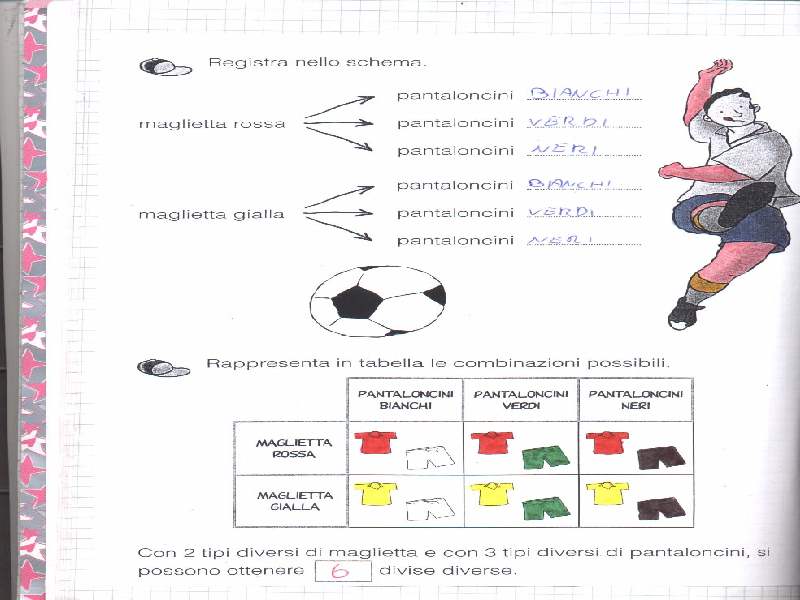 Registra nello schema.
maglietta rossa
pantaloncini BIANCHI
pantaloncini VERDI
pantaloncini NERI
maglietta gialla
pantaloncini BIANCHI
pantaloncini VERDI
pantaloncini NERI
Rappresenta in tabella le combinazioni possibili.
PANTALONCINI BIANCHI PANTALONCINI VERDI PANTALONCINI NERI
MAGLIETTA ROSSA
MAGLIETTA GIALLA
Con 2 tipi diversi di maglietta e con 3 tipi diversi di pantaloncini, si
possono ottenere 6 divise diverse.